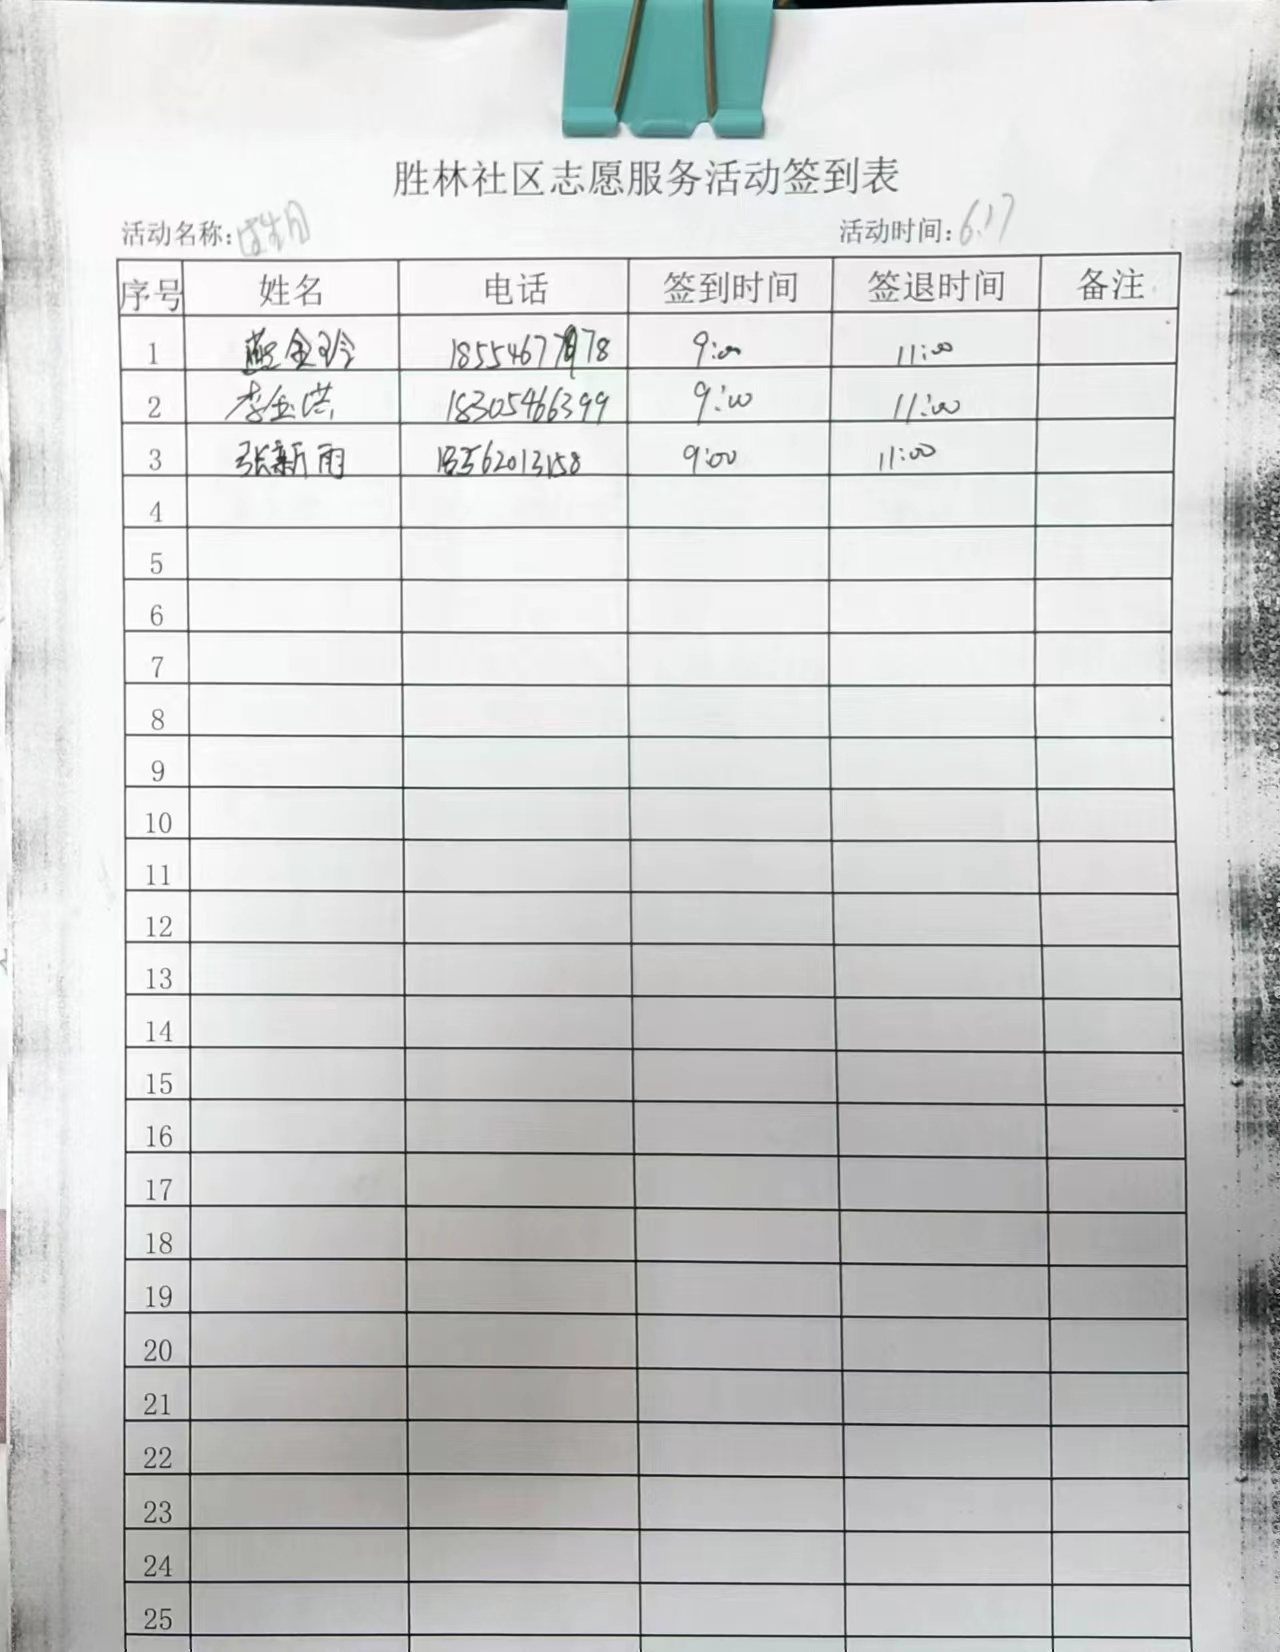 胜林社区志愿服务活动签到表
活动名称: 活动时间: 6.17
序号 姓名 电话 签到时间 签退时间 备注
1 燕金玲 9:00 11:00
2 李玉洪 18305466399 9:00 11:00
3 张新雨 18562013158 9:00 11:00
4
5
6
7
8
9
10
11
12
13
14
15
16
17
18
19
20
21
22
23
24
25